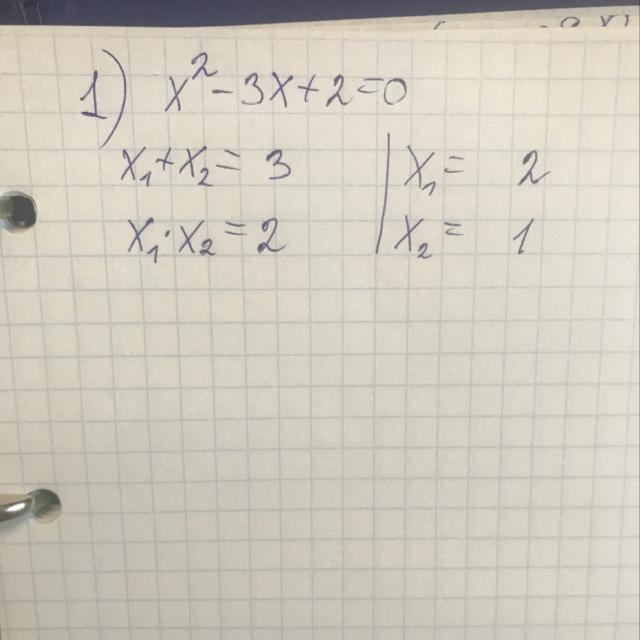 1) x² - 3x + 2 = 0
x₁ + x₂ = 3 | x₁ = 2
x₁ · x₂ = 2 | x₂ = 1